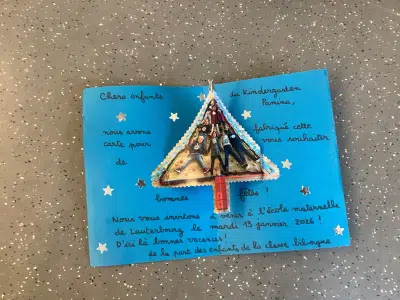 Chers enfants du Kindergarten
Pamina,
nous avons fabriqué cette
carte pour vous souhaiter
de
bonnes fêtes !
Nous vous invitons à venir à l'école maternelle
de Lauterbourg le mardi 13 janvier 2026 !
D'ici là bonnes vacances !
de la part des enfants de la classe bilingue